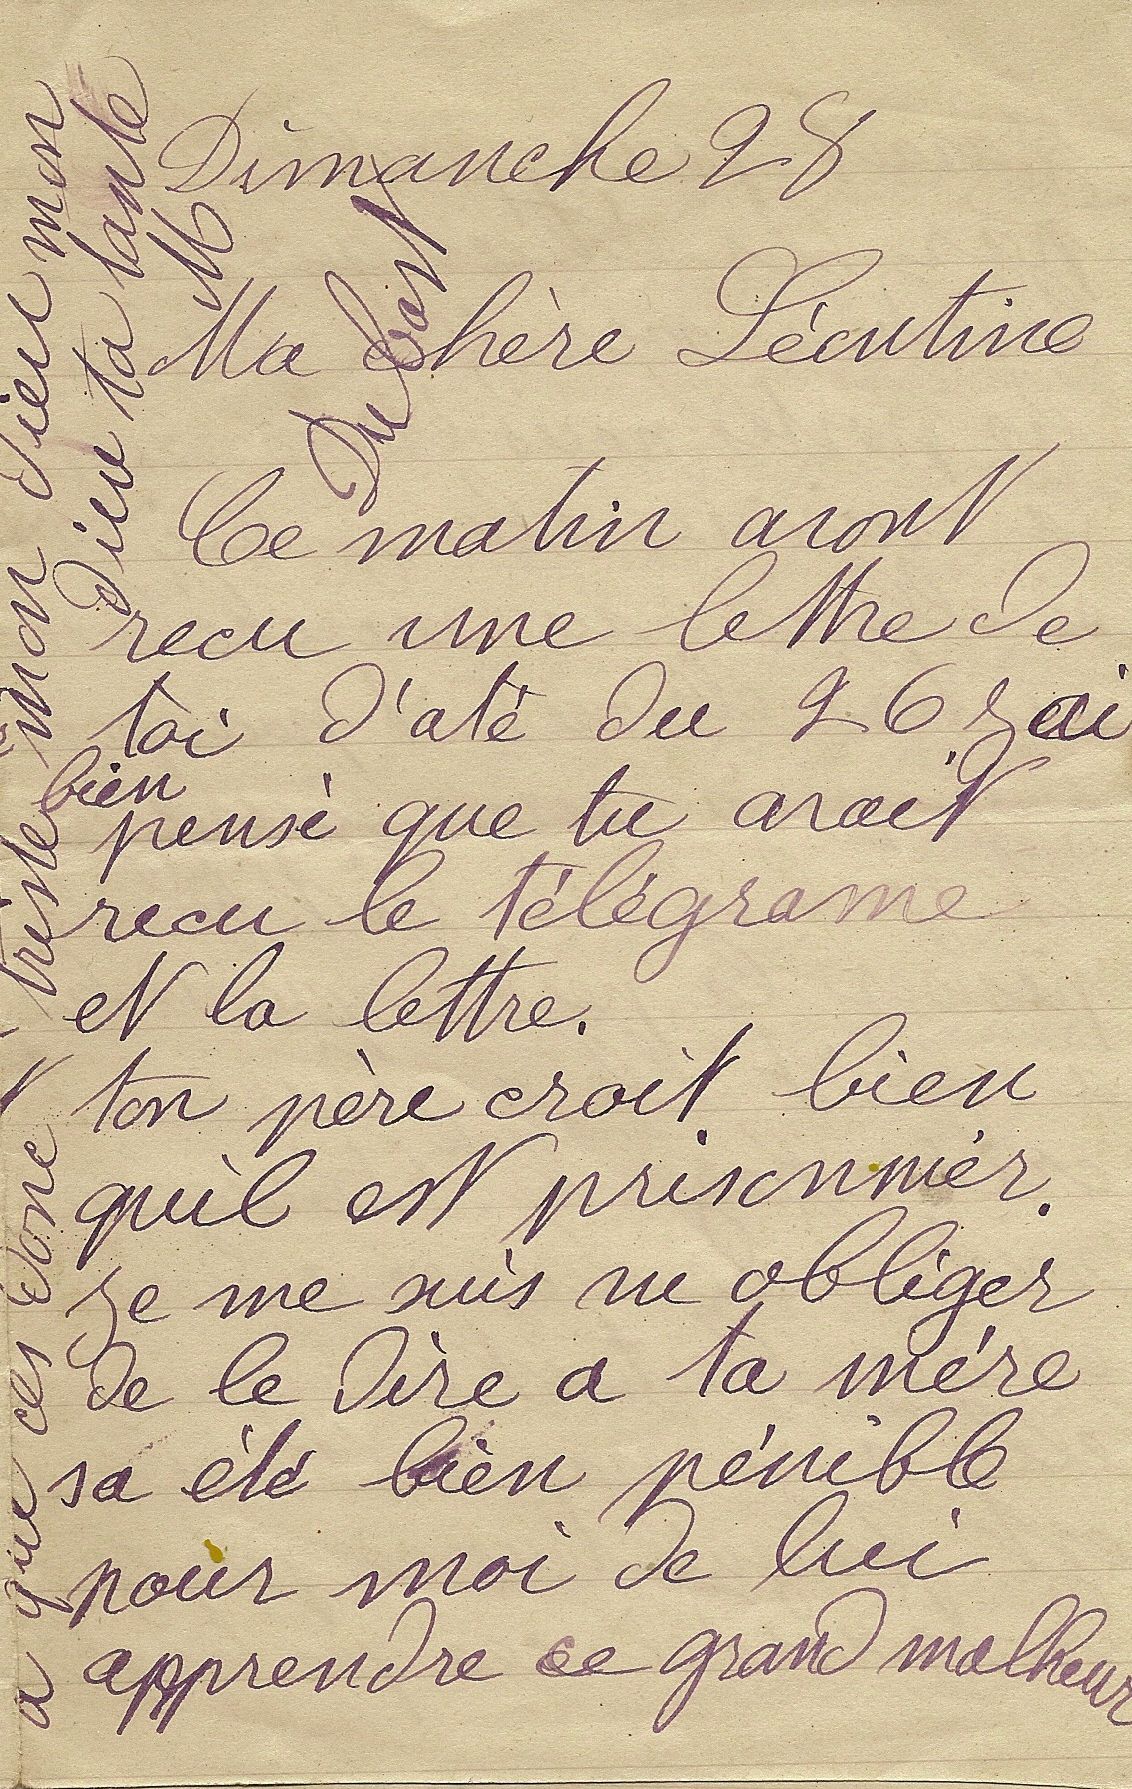 Dimanche 28
Ma chère Lécutine
Ce matin avont
recu une lettre de
toi d'até du 26 jai
bien
pensé que tu avait
recu le télégrame
et la lettre.
ton père croit bien
quìl est prisonnier.
je me suis vu obliger
de le dire a ta mére
sa été bien pénible
pour moi de lui
apprendre ce grand malheur
a que ces donc triste mon Dieu mon
Dieu ta tante
M
Dubost